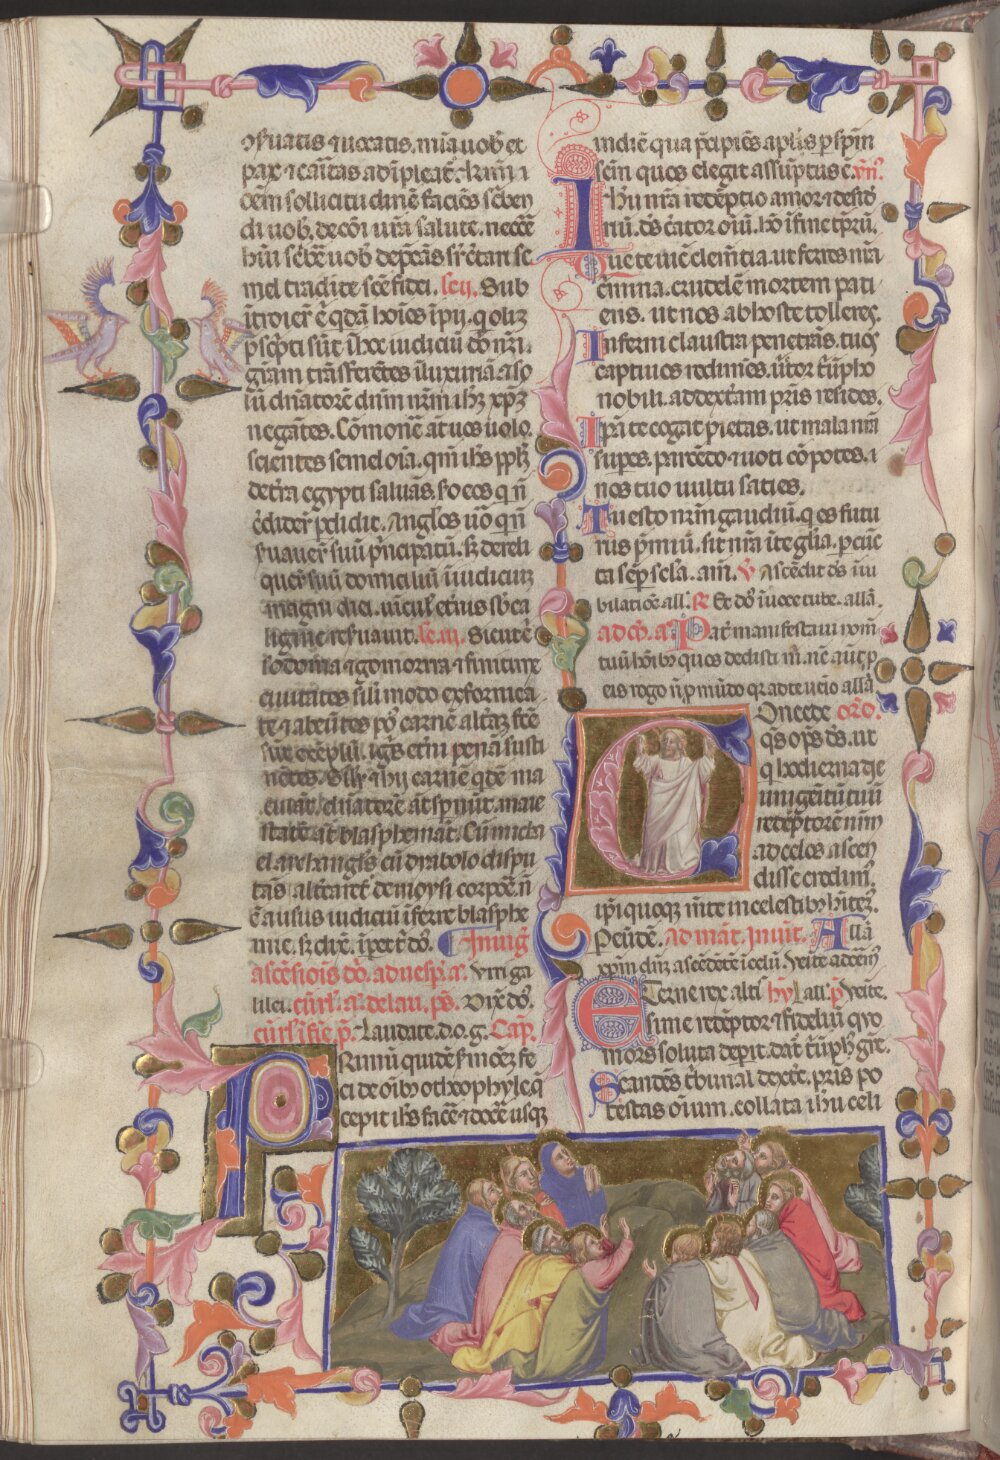 9ſuatis ⁊ uocatis. mīa uob̄ et
pax ⁊ cāitas adīpleat᷑. kmī ⁊
oēm sollicitudinē faciēs sc̄ben
di uob̄. de cōī ur̄a salute. necēē
hūi sc̄bē uob̄ dep̄cās sr̄c̄tari se
mel tradite scē fidei. lc̄.ij. Sub
ītroier̄ .n̄. qdā hoīes īpij. q oliꝫ
p̄sc̄pti sūt ī hoc iudiciū d̄o nr̄i
gr̄am trāsferētes ī luxuriā. ⁊ so
lū dn̄atorē dn̄m nr̄m ihꝫ xp̄ꝫ
negātes. Cōmonē aūt uos uolo.
scientes semel oīa. qm̄ ihs̄ pp̄lꝫ
de tr̄a egypti saluās. sc̄do eos q n̄
c̄dider̄ p̄didit. Angl̄os uo᷑ q n̄
s̄uauer̄ suū p̄ncipatū. sꝫ dereli
quer̄ suū domiciliū ī iudiciuꝫ
magni diei. uīcul̄ et̄nis sb̄ ca
ligine res̄uauit. lc̄.iij. Sicut
sodoma ⁊ gomorra ⁊ finitime
ciuitates sil̄i modo exfornica
te ⁊ abeūtes p9 carnē alt̄aꝫ fc̄e
sūt exēplū. igīs et̄ni penā susti
nētes. Sil̄r ⁊ hij carnē qdē ma
culāt. dn̄atorē aūt sp̄nūt. maie
statē aūt blasphemāt. Cū micha
el archangl̄s cū dyabolo dispu
tās alt̄caret᷑ de moysi corpoē. n̄
ē ausus iudiciū īferre blasphe
mie. sꝫ dix̄. īpet̄ t̄ do9. In uigil̄
ascēsiois dō. ad uesp̄. an̄. Viri ga
lilei. cū rl̄. an̄. de lau. p̄s. Dix̄ do9.
cū rl̄. ī fi. p̄. Laudate. d. o. g. Cap̄.
Primū quidē s̄monēꝫ fe
ci de oībꝫ o theophyle. q̄
cepit ihs̄ face ⁊ docē usqꝫ
in diē qua p̄cipiēs aplīs p sp̄m
scm̄ quos elegit assūptus ē. ymn̄9.
Ihu nr̄a redēptio amor ⁊ deside
riū. ds̄ c̄ator oīū. hō ī fine tp̄rū.
Que te uic̄ clem̄tia. ut ferres nr̄a
c̄mina. crudelē mortem pati
ens. ut nos a b morte tolleres.
Inferni claustra penetrās. tuos
captiuos redimēs. uctor t̄ūpho
nobili. ad dext̄am pr̄is residēs.
Ipā te cogat pietas. ut mala nr̄a
supes. parcēdo ⁊ uoti cōpotes.
nos tuo uultu saties.
Tu esto nr̄m gaudiū. q es futu
rus p̄miū. sit nr̄a ī te gl̄ia. p cūc
ta sēp sc̄la. am̄. V̄ Ascēdit ds̄ ī iu
bilatiōe all̄. R̄ Et do9 ī uoce tube. allā.
ad m̄. an̄. Pat̄ manifestaui nom̄
tuū hoībꝫ quos dedisti m̄. nc̄ aūt p
eis rogo n̄ p mūdo qr ad te uēio allā
Concede or̄o.
qs̄ op̄s ds̄. ut
q hodierna die
unigēitū tuū
redēptorē nr̄m
ad celos ascen
disse credim9.
ip̄i quoqꝫ mēte in celestibꝫ hītem9.
P eūdē. Ad māt. Inuit̄. Allā
xp̄m dn̄ꝫ ascēdētē ī celū. Venite adorem9
allā. p̄ Venite. hy.
Eterne rex altis
sime redēptor ⁊ fideliū quo
mors soluta depit. dat᷑ t̄ūph9 gr̄e.
Scandēs t̄bunal dext̄e. pr̄is po
testas oīum. collata ihu celi